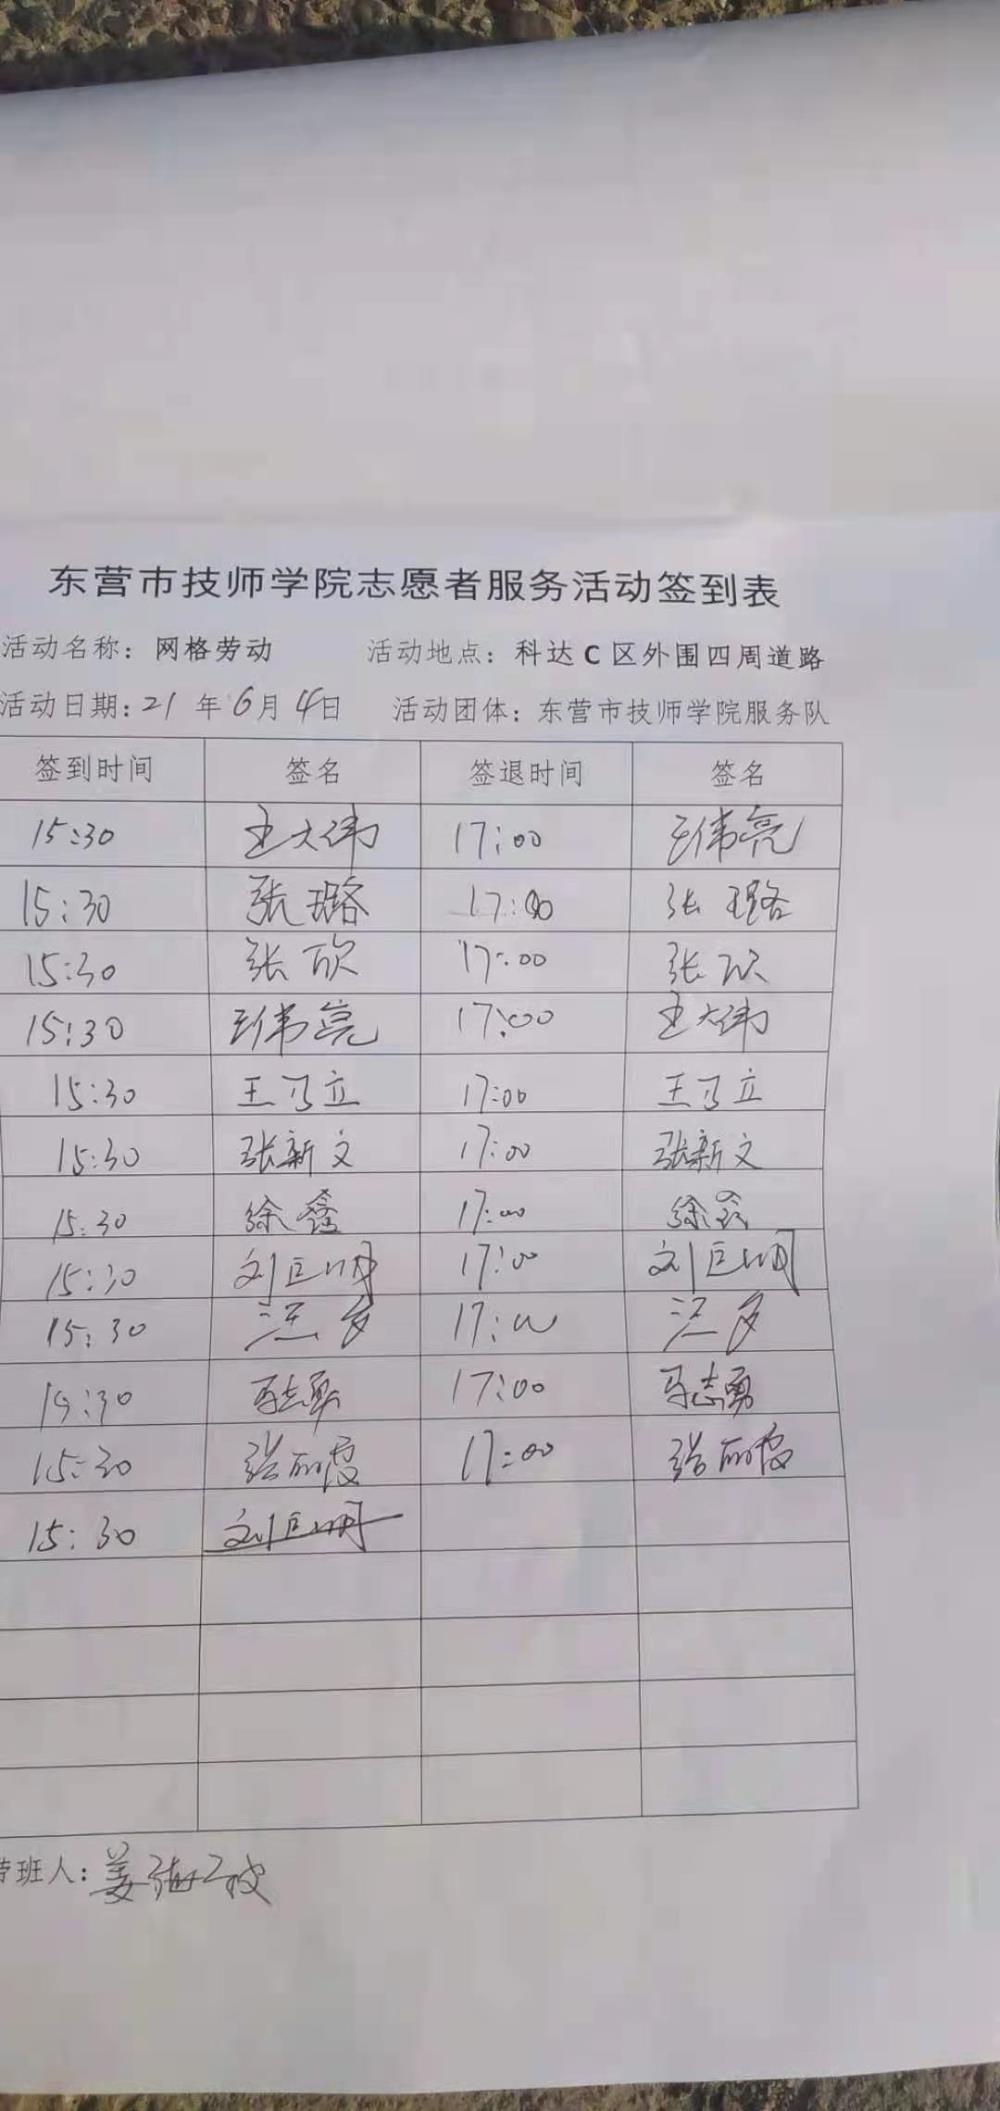 东营市技师学院志愿者服务活动签到表
活动名称：网格劳动 活动地点：科达C区外围四周道路
活动日期：21年6月4日 活动团体：东营市技师学院服务队
签到时间 签名 签退时间 签名
15:30 王大伟 17:00 王伟亮
15:30 张璐 17:00 张璐
15:30 张欣 17:00 张欣
15:30 王伟亮 17:00 王大伟
15:30 王乃立 17:00 王乃立
15:30 张新文 17:00 张新文
15:30 徐鑫 17:00 徐鑫
15:30 刘巨明 17:00 刘巨明
15:30 17:00
15:30 马志勇 17:00 马志勇
15:30 张丽霞 17:00 张丽霞
15:30 刘巨明
带班人：姜海波